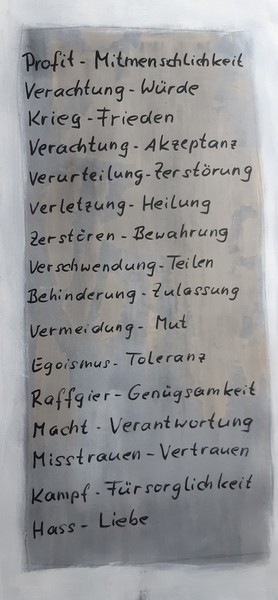 Profit - Mitmenschlichkeit
Verachtung - Würde
Krieg - Frieden
Verachtung - Akzeptanz
Verurteilung - Zerstörung
Verletzung - Heilung
Zerstören - Bewahrung
Verschwendung - Teilen
Behinderung - Zulassung
Vermeidung - Mut
Egoismus - Toleranz
Raffgier - Genügsamkeit
Macht - Verantwortung
Misstrauen - Vertrauen
Kampf - Fürsorglichkeit
Hass - Liebe